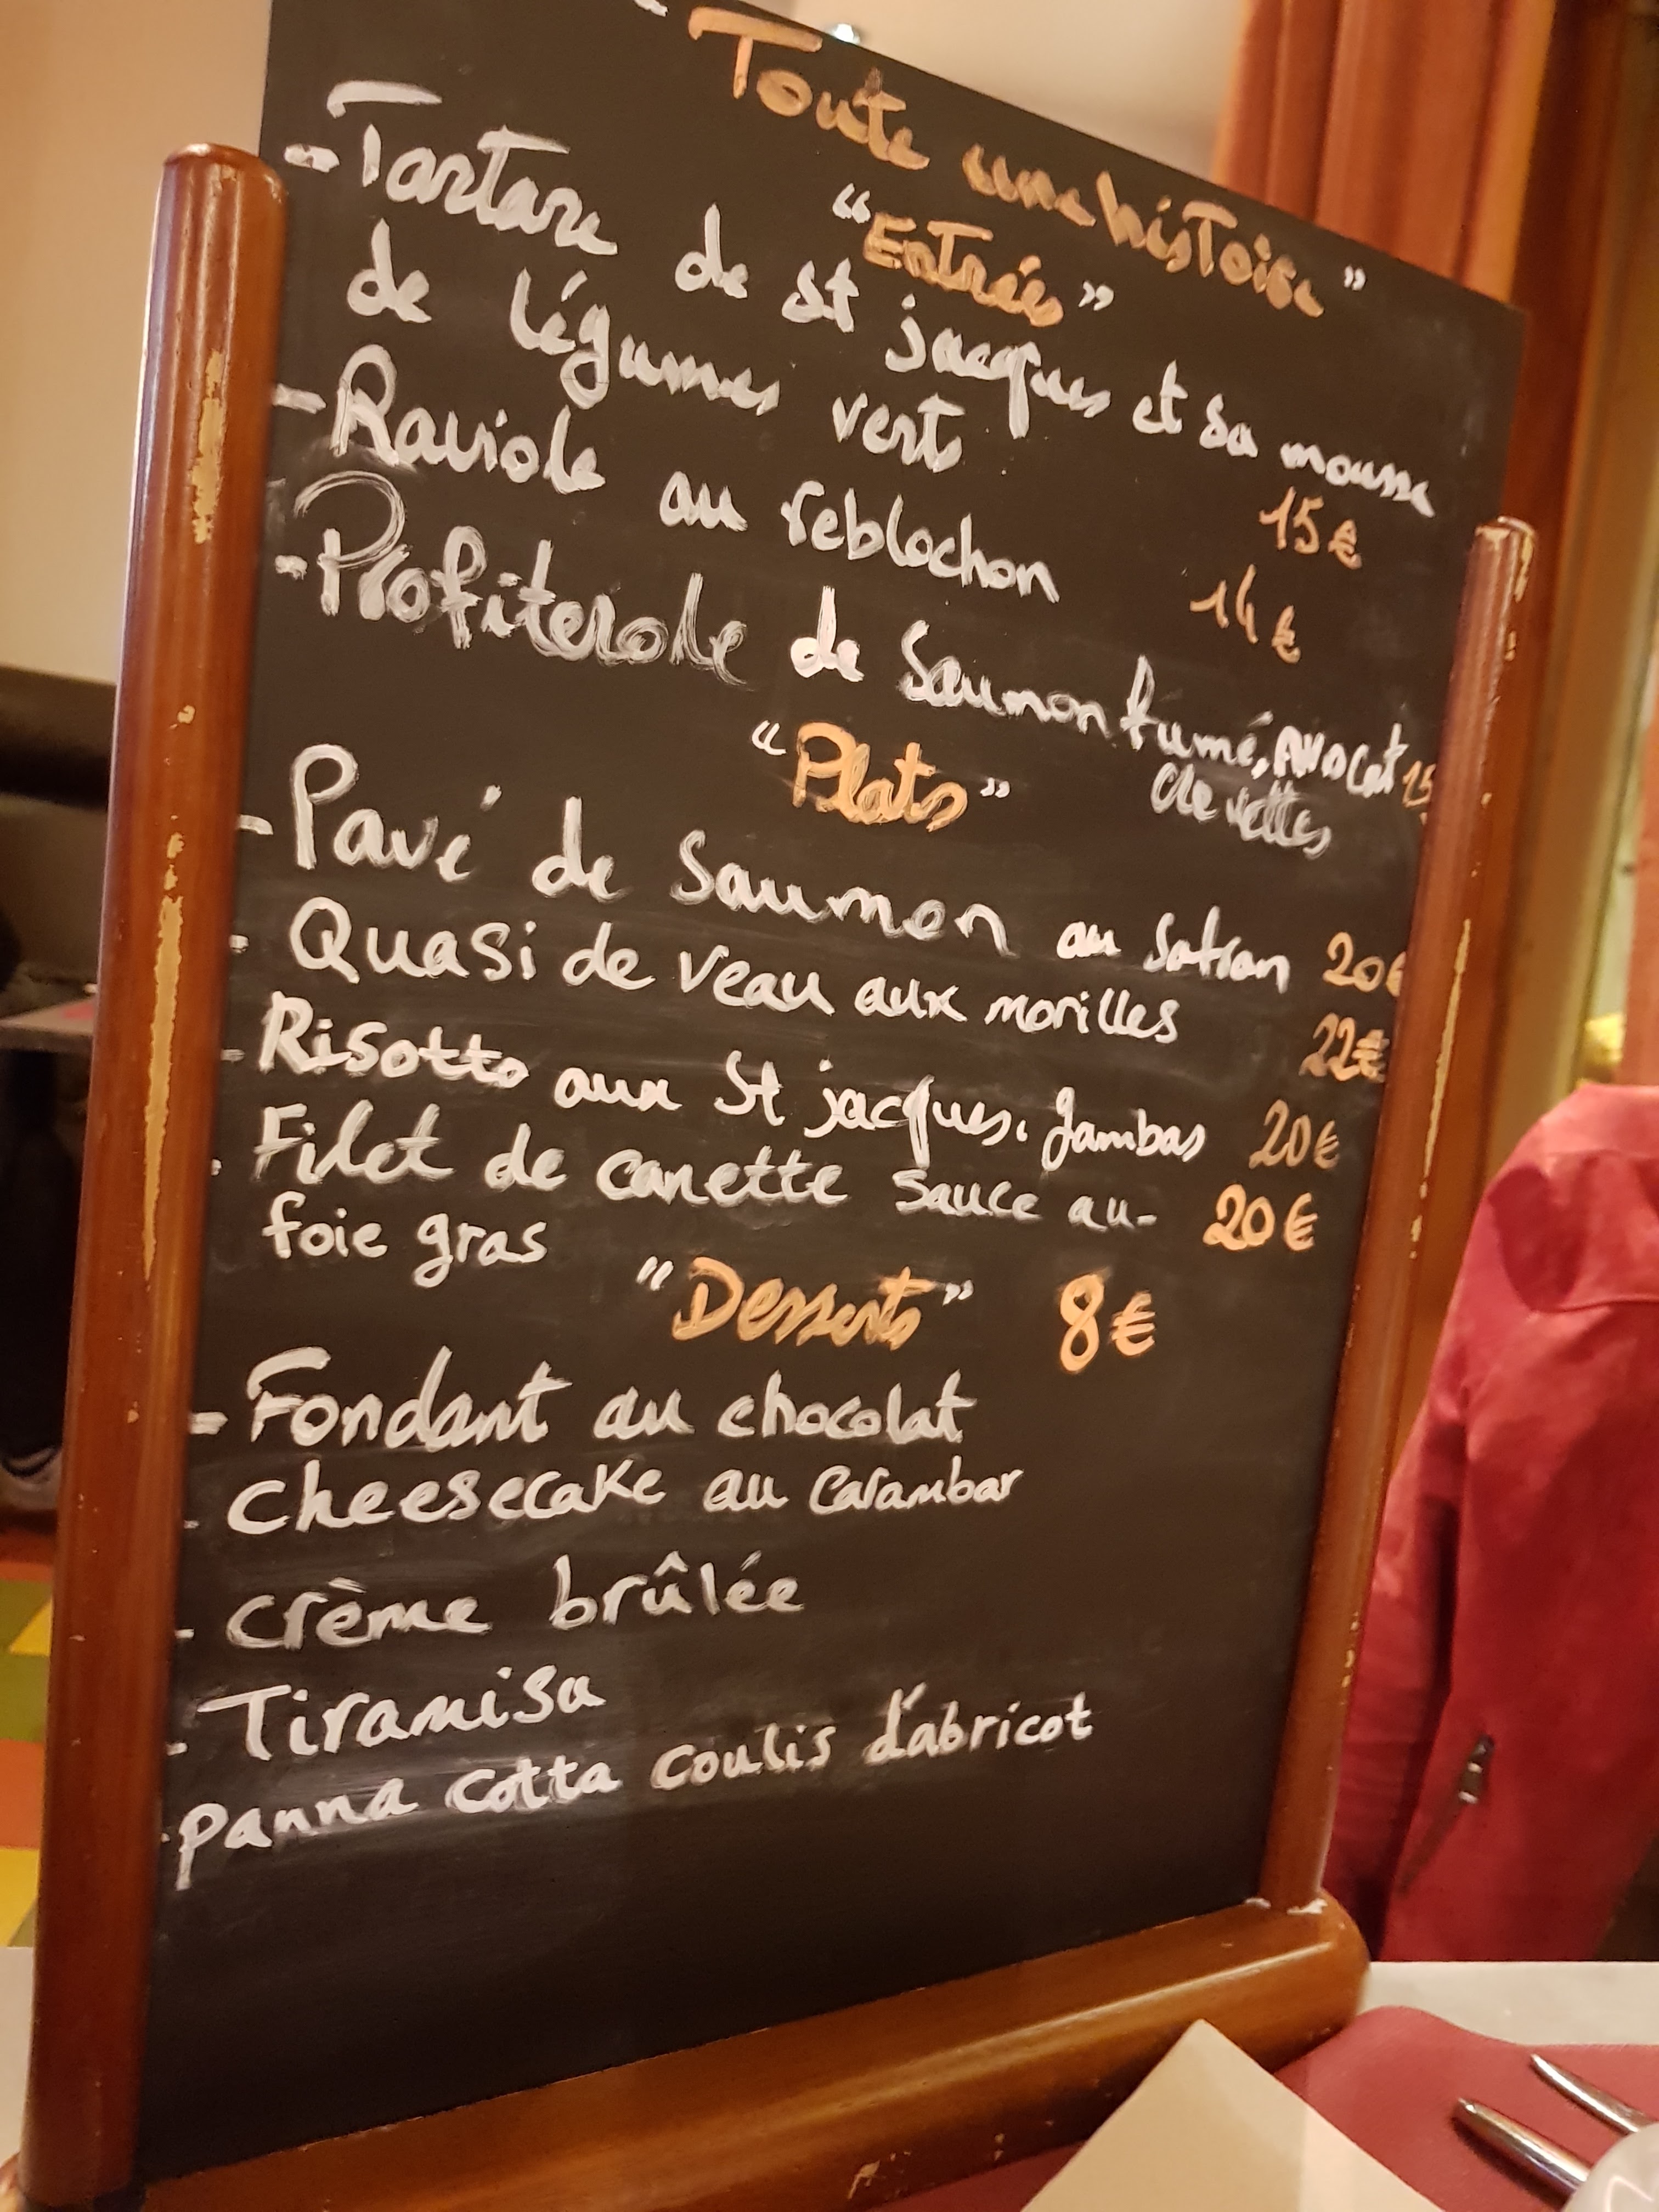 "Toute une histoire"
"Entrées"
- Tartare de st jacques et sa mousse
de légumes vert 15€
- Raviole au reblochon 14€
- Profiterole de Saumon fumé, Avocat 15
"Plats"
- Pavé de Saumon au Safran 20€
- Quasi de veau aux morilles 22€
- Risotto aux St jacques, gambas 20€
- Filet de canette sauce au- 20€
foie gras
"Desserts" 8€
- Fondant au chocolat
- Cheesecake au Carambar
- Crème brûlée
- Tiramisu
- panna cotta coulis d'abricot